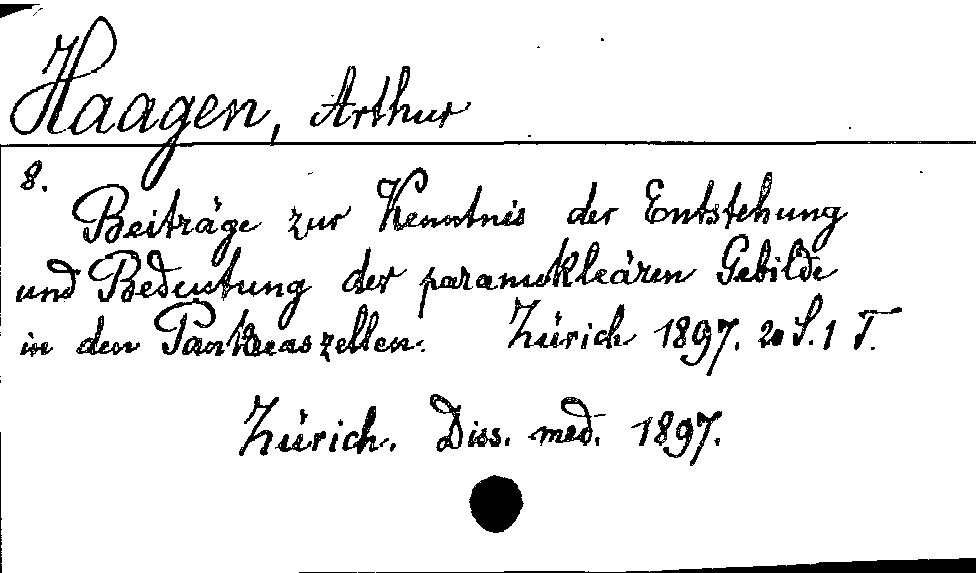 Haagen, Arthur
8.
Beiträge zur Kenntnis der Entstehung
und Bedeutung der paranukleären Gebilde
in den Pankreaszellen. Zürich 1897. 20 S. 1 T.
Zürich. Diss. med. 1897.